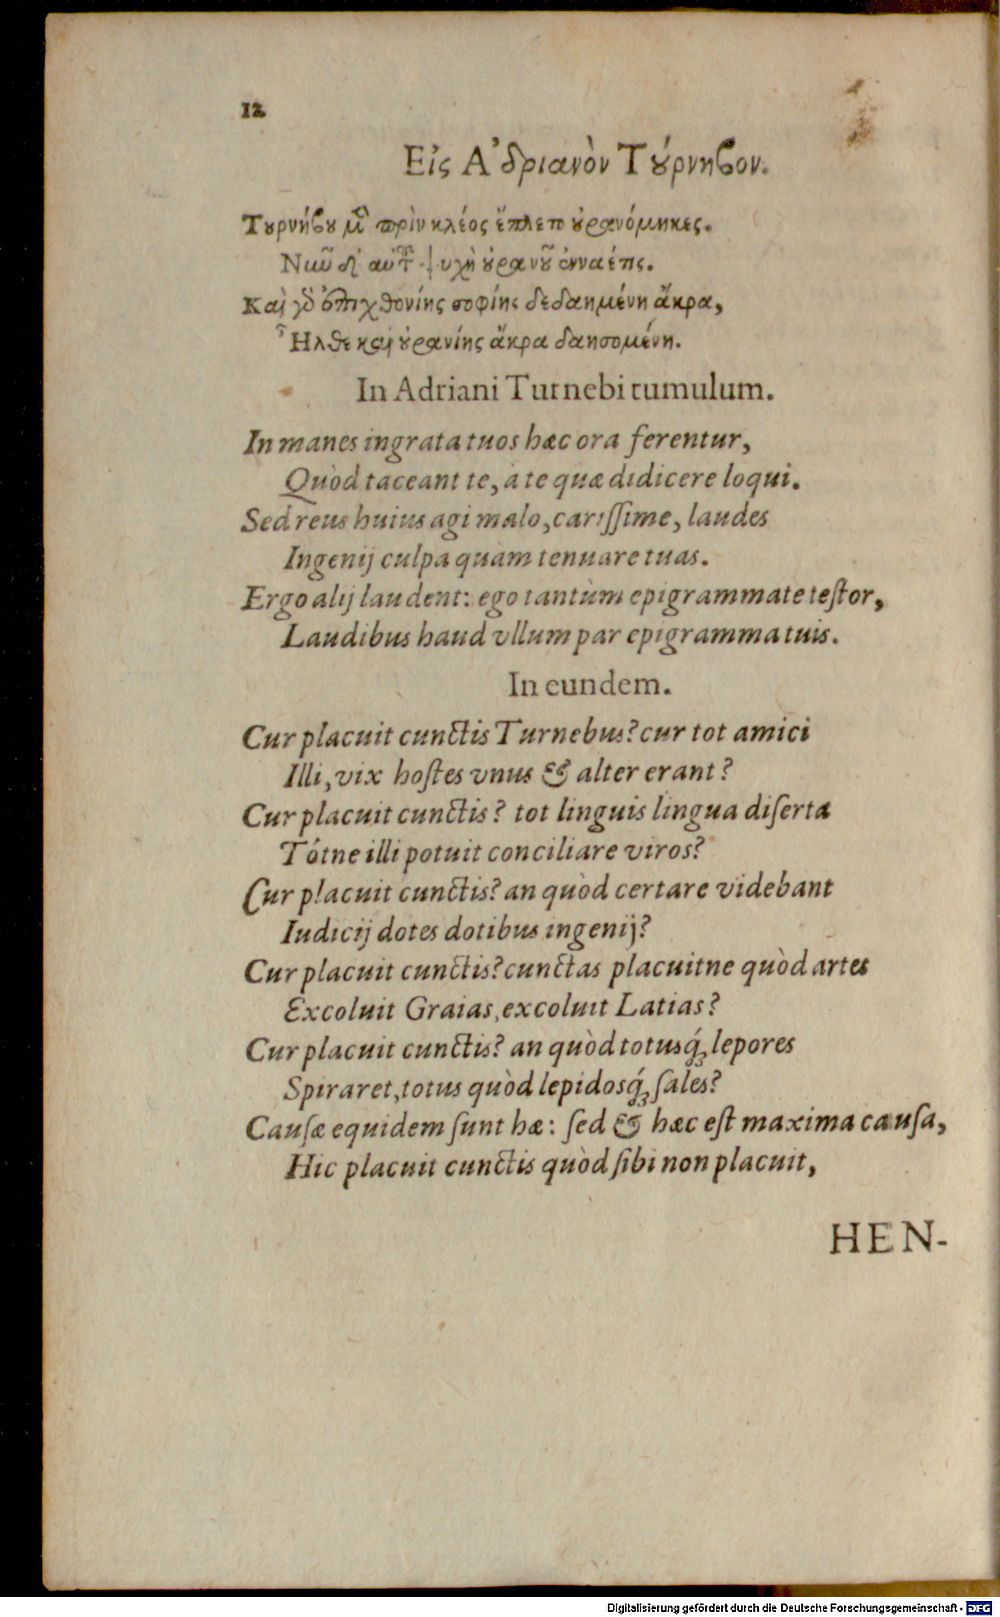 12
Εἰς Ἀδριανὸν Τούρνηβον.
Τουρνήβου μὲν πρὶν κλέος ἔπλετο οὐρανόμηκες.
Νῦν δ' αὐτὴ ψυχὴ οὐρανοῦ ἐνναέτις.
Καὶ γὰρ ἐπιχθονίης σοφίης δεδαημένη ἄκρα,
Ἦλθε καὶ οὐρανίης ἄκρα δαησομένη.
In Adriani Turnebi tumulum.
In manes ingrata tuos hæc ora ferentur,
Quòd taceant te, à te quæ didicere loqui.
Sed reus huius agi malo, carissime, laudes
Ingenij culpa quàm tenuare tuas.
Ergo alij laudent: ego tantùm epigrammate testor,
Laudibus haud vllum par epigramma tuis.
In eundem.
Cur placuit cunctis Turnebus? cur tot amici
Illi, vix hostes vnus & alter erant?
Cur placuit cunctis? tot linguis lingua diserta
Tótne illi potuit conciliare viros?
Cur placuit cunctis? an quòd certare videbant
Iudicij dotes dotibus ingenij?
Cur placuit cunctis? cunctas placuitne quòd artes
Excoluit Graias, excoluit Latias?
Cur placuit cunctis? an quòd totusq́; lepores
Spiraret, totus quòd lepidosq́; sales?
Causæ equidem sunt hæ: sed & hæc est maxima causa,
Hic placuit cunctis quòd sibi non placuit,
HEN-
Digitalisierung gefördert durch die Deutsche Forschungsgemeinschaft - DFG